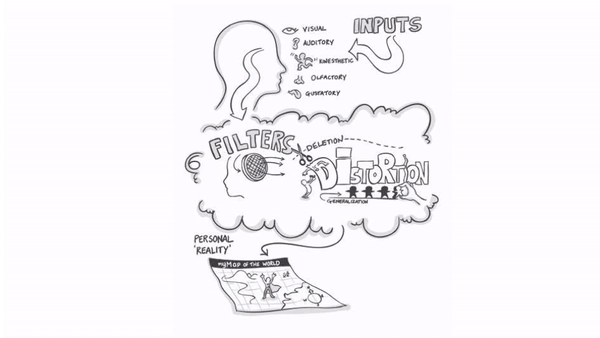 INPUTS
VISUAL
AUDITORY
KINESTHETIC
OLFACTORY
GUSTATORY
FILTERS
DELETION
DISTORTION
GENERALIZATION
PERSONAL
'REALITY'
MY MAP OF THE WORLD